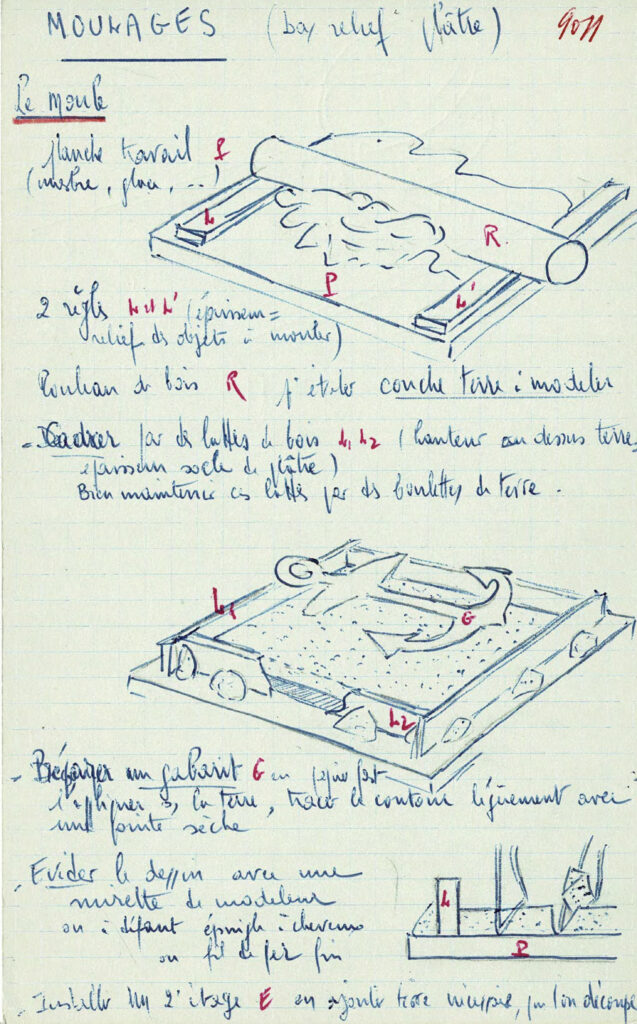 MOULAGES (bas relief plâtre) 9011
Le moule
planche travail P
(marbre, glace, ...)
L
R
P
L'
2 règles L et L' (épaisseur =
relief des objets à mouler)
Rouleau de bois R pr étaler couche terre à modeler
- Cadrer par des lattes de bois L1 L2 (hauteur au dessus terre,
épaisseur socle de plâtre)
Bien maintenir ces lattes par des boulettes de terre.
L1
G
L2
- Préparer un gabarit G en papier fort
l'appliquer s, la terre, tracer le contour légèrement avec
une pointe sèche
- Evider le dessin avec une
mirette de modeleur
ou à défaut épingle à cheveux
ou fil de fer fin
L
P
- Installer un 2e étage E en ajoutant terre que l'on découpe